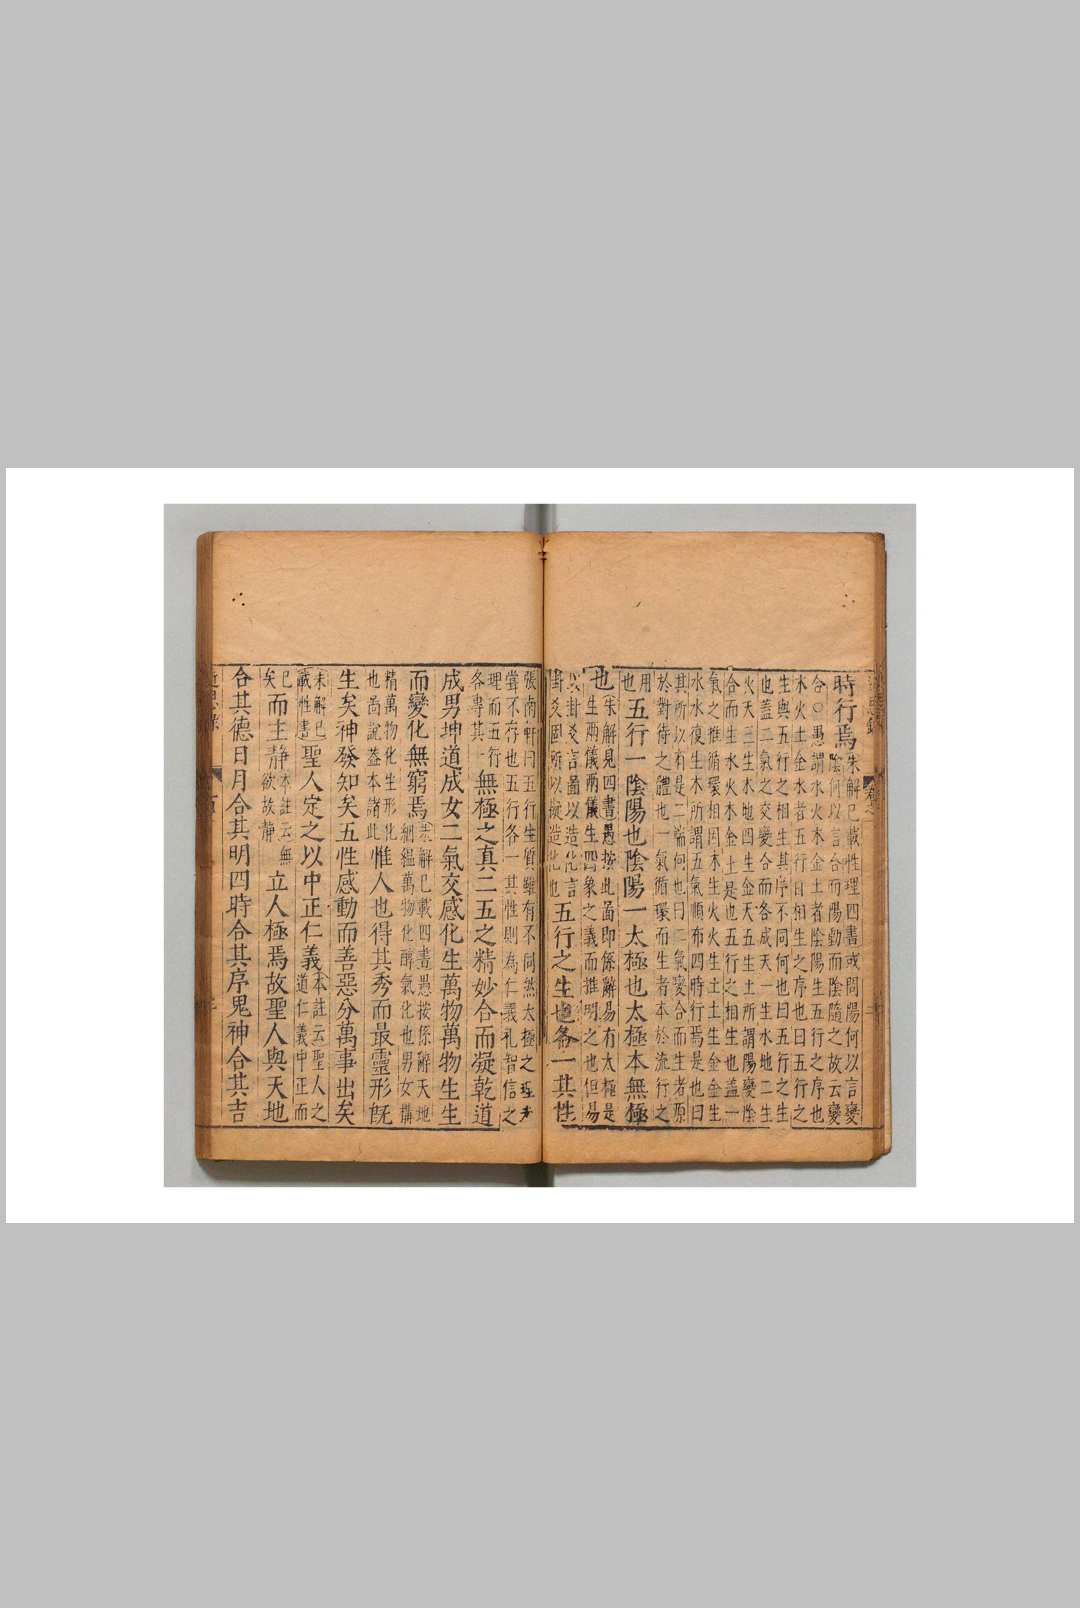 時行焉朱解已載性理四書或問陽何以言變
陰何以言合而陽動而陰隨之故云變
合〇愚謂水火木金土者陰陽生五行之序也
木火土金水者五行自相生之序也曰五行之
生與五行之相生其序不同何也曰五行之生
也蓋二氣之交變合而各成天一生水地二生
火天三生木地四生金天五生土所謂陽變陰
合而生水火木金土是也五行之相生也蓋一
氣之推循環相因木生火火生土土生金金生
水水復生木所謂五氣順布四時行焉是也曰
其所以有是二端何也曰二氣變合而生者原
於對待之體也一氣循環而生者本於流行之
用
也五行一陰陽也陰陽一太極也太極本無極
也朱解見四書愚按此啚即係辭易有太極是
生兩儀兩儀生四象之義而推明之也但易
以卦爻言啚以造化言
卦爻固所以擬造化也五行之生也各一其性
張南軒曰五行生質雖有不同然太極之理未
嘗不存也五行各一其性則為仁義礼智信之
理而五行
各專其一無極之真二五之精妙合而凝乾道
成男坤道成女二氣交感化生萬物萬物生生
而變化無窮焉朱解已載四書愚按係辭天地
絪縕萬物化醇氣化也男女搆
精萬物化生形化
也啚說蓋本諸此惟人也得其秀而最靈形旣
生矣神發知矣五性感動而善惡分萬事出矣
朱解已
載性書聖人定之以中正仁義本註云聖人之
道仁義中正而
已
矣而主靜本註云無
欲故靜立人極焉故聖人與天地
合其德日月合其明四時合其序鬼神合其吉